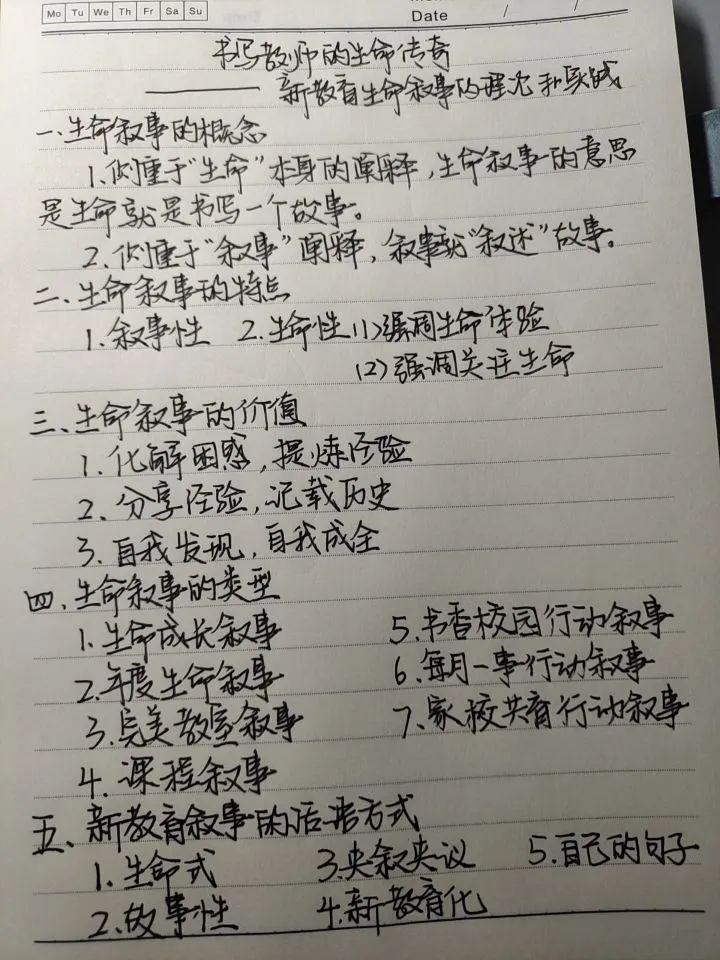 Mo Tu We Th Fr Sa Su
Date / /
书写教师的生命传奇
——— 新教育生命叙事的理论和实践
一、生命叙事的概念
1.侧重于"生命"本身的阐释,生命叙事的意思
是生命就是书写一个故事。
2.侧重于"叙事"阐释,叙事就"叙述"故事。
二、生命叙事的特点
1.叙事性 2.生命性(1)强调生命体验
(2)强调关注生命
三、生命叙事的价值
1.化解困惑,提炼经验
2.分享经验,记载历史
3.自我发现,自我成全
四、生命叙事的类型
1.生命成长叙事 5.书香校园行动叙事
2.年度生命叙事 6.每月一事行动叙事
3.完美教室叙事 7.家校共育行动叙事
4.课程叙事
五、新教育叙事的话语方式
1.生命式 3.夹叙夹议 5.自己的句子
2.故事性 4.新教育化